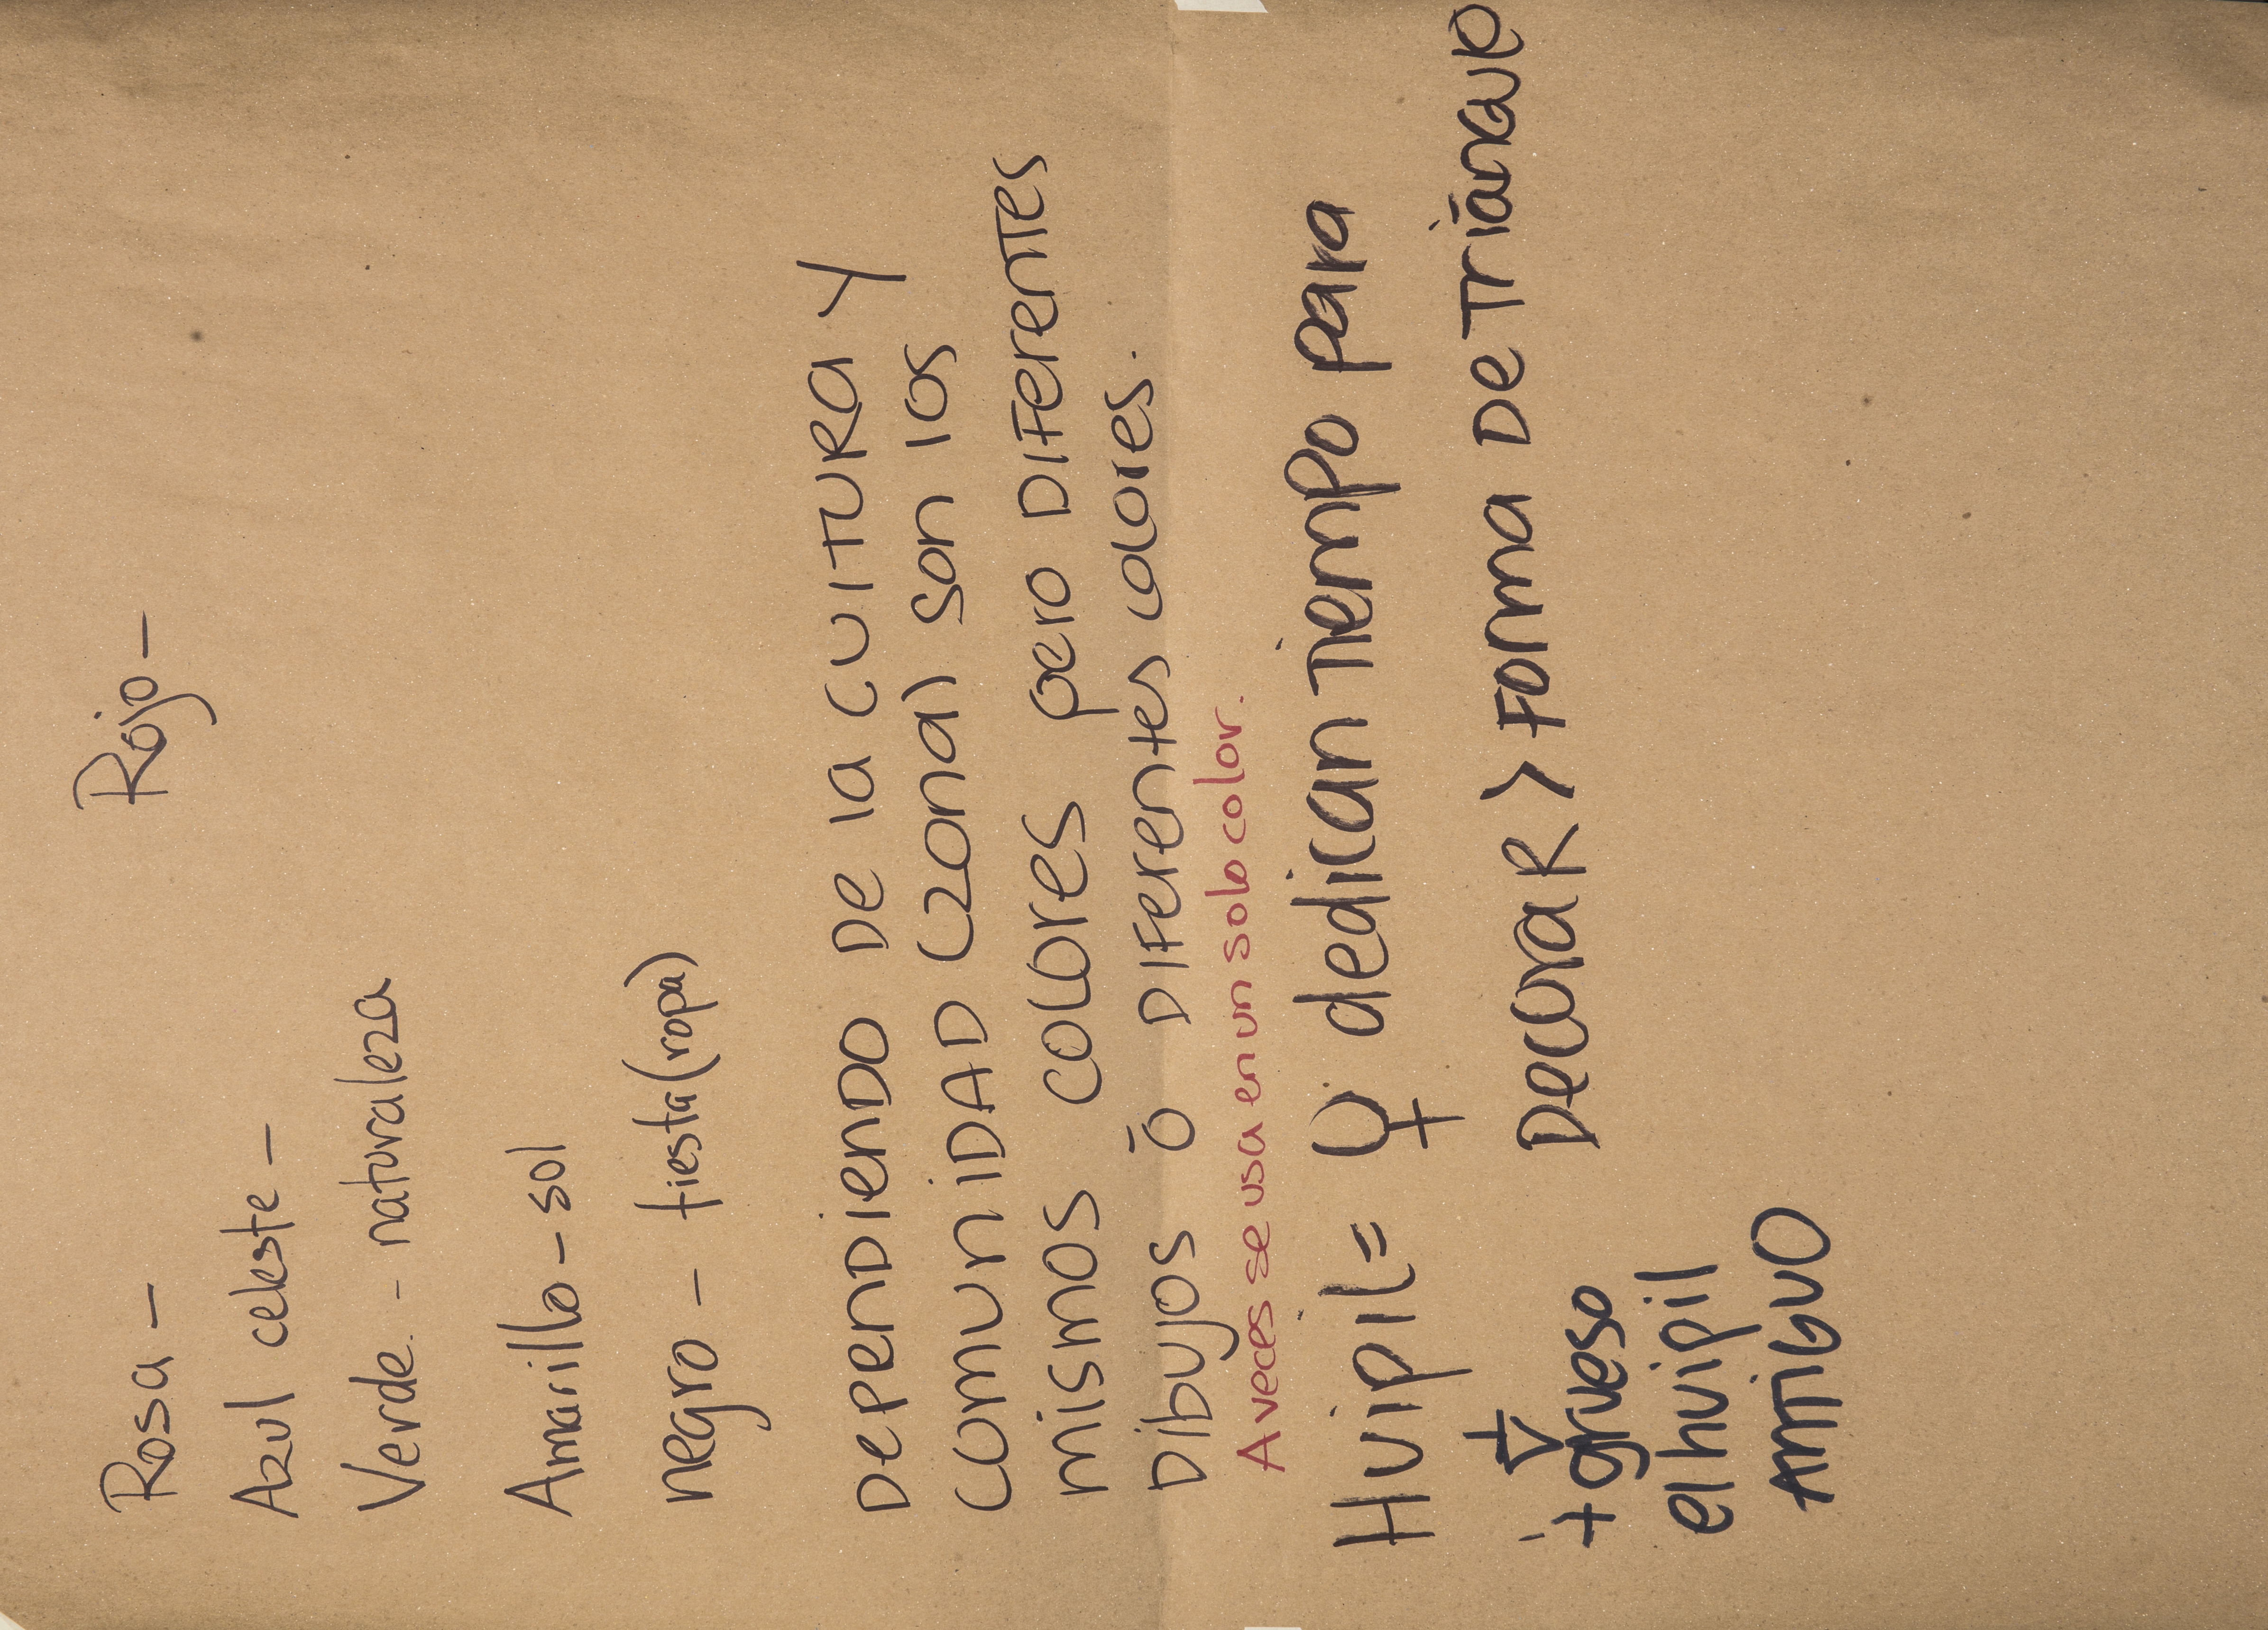 Rosa - Rojo -
Azul celeste -
Verde - naturaleza
Amarillo - sol
negro - fiesta (ropa)
DepenDienDO De la cultura y
comuniDAD (zona) son los
mismos colores pero DiFerenTes
Dibujos ó DiFerentes colores.
A veces se usa en un solo color.
Huipil = ♀ dedican Tiempo para
Decorar > Forma De Triángulo
+ grueso
el huipil
AnTiguo